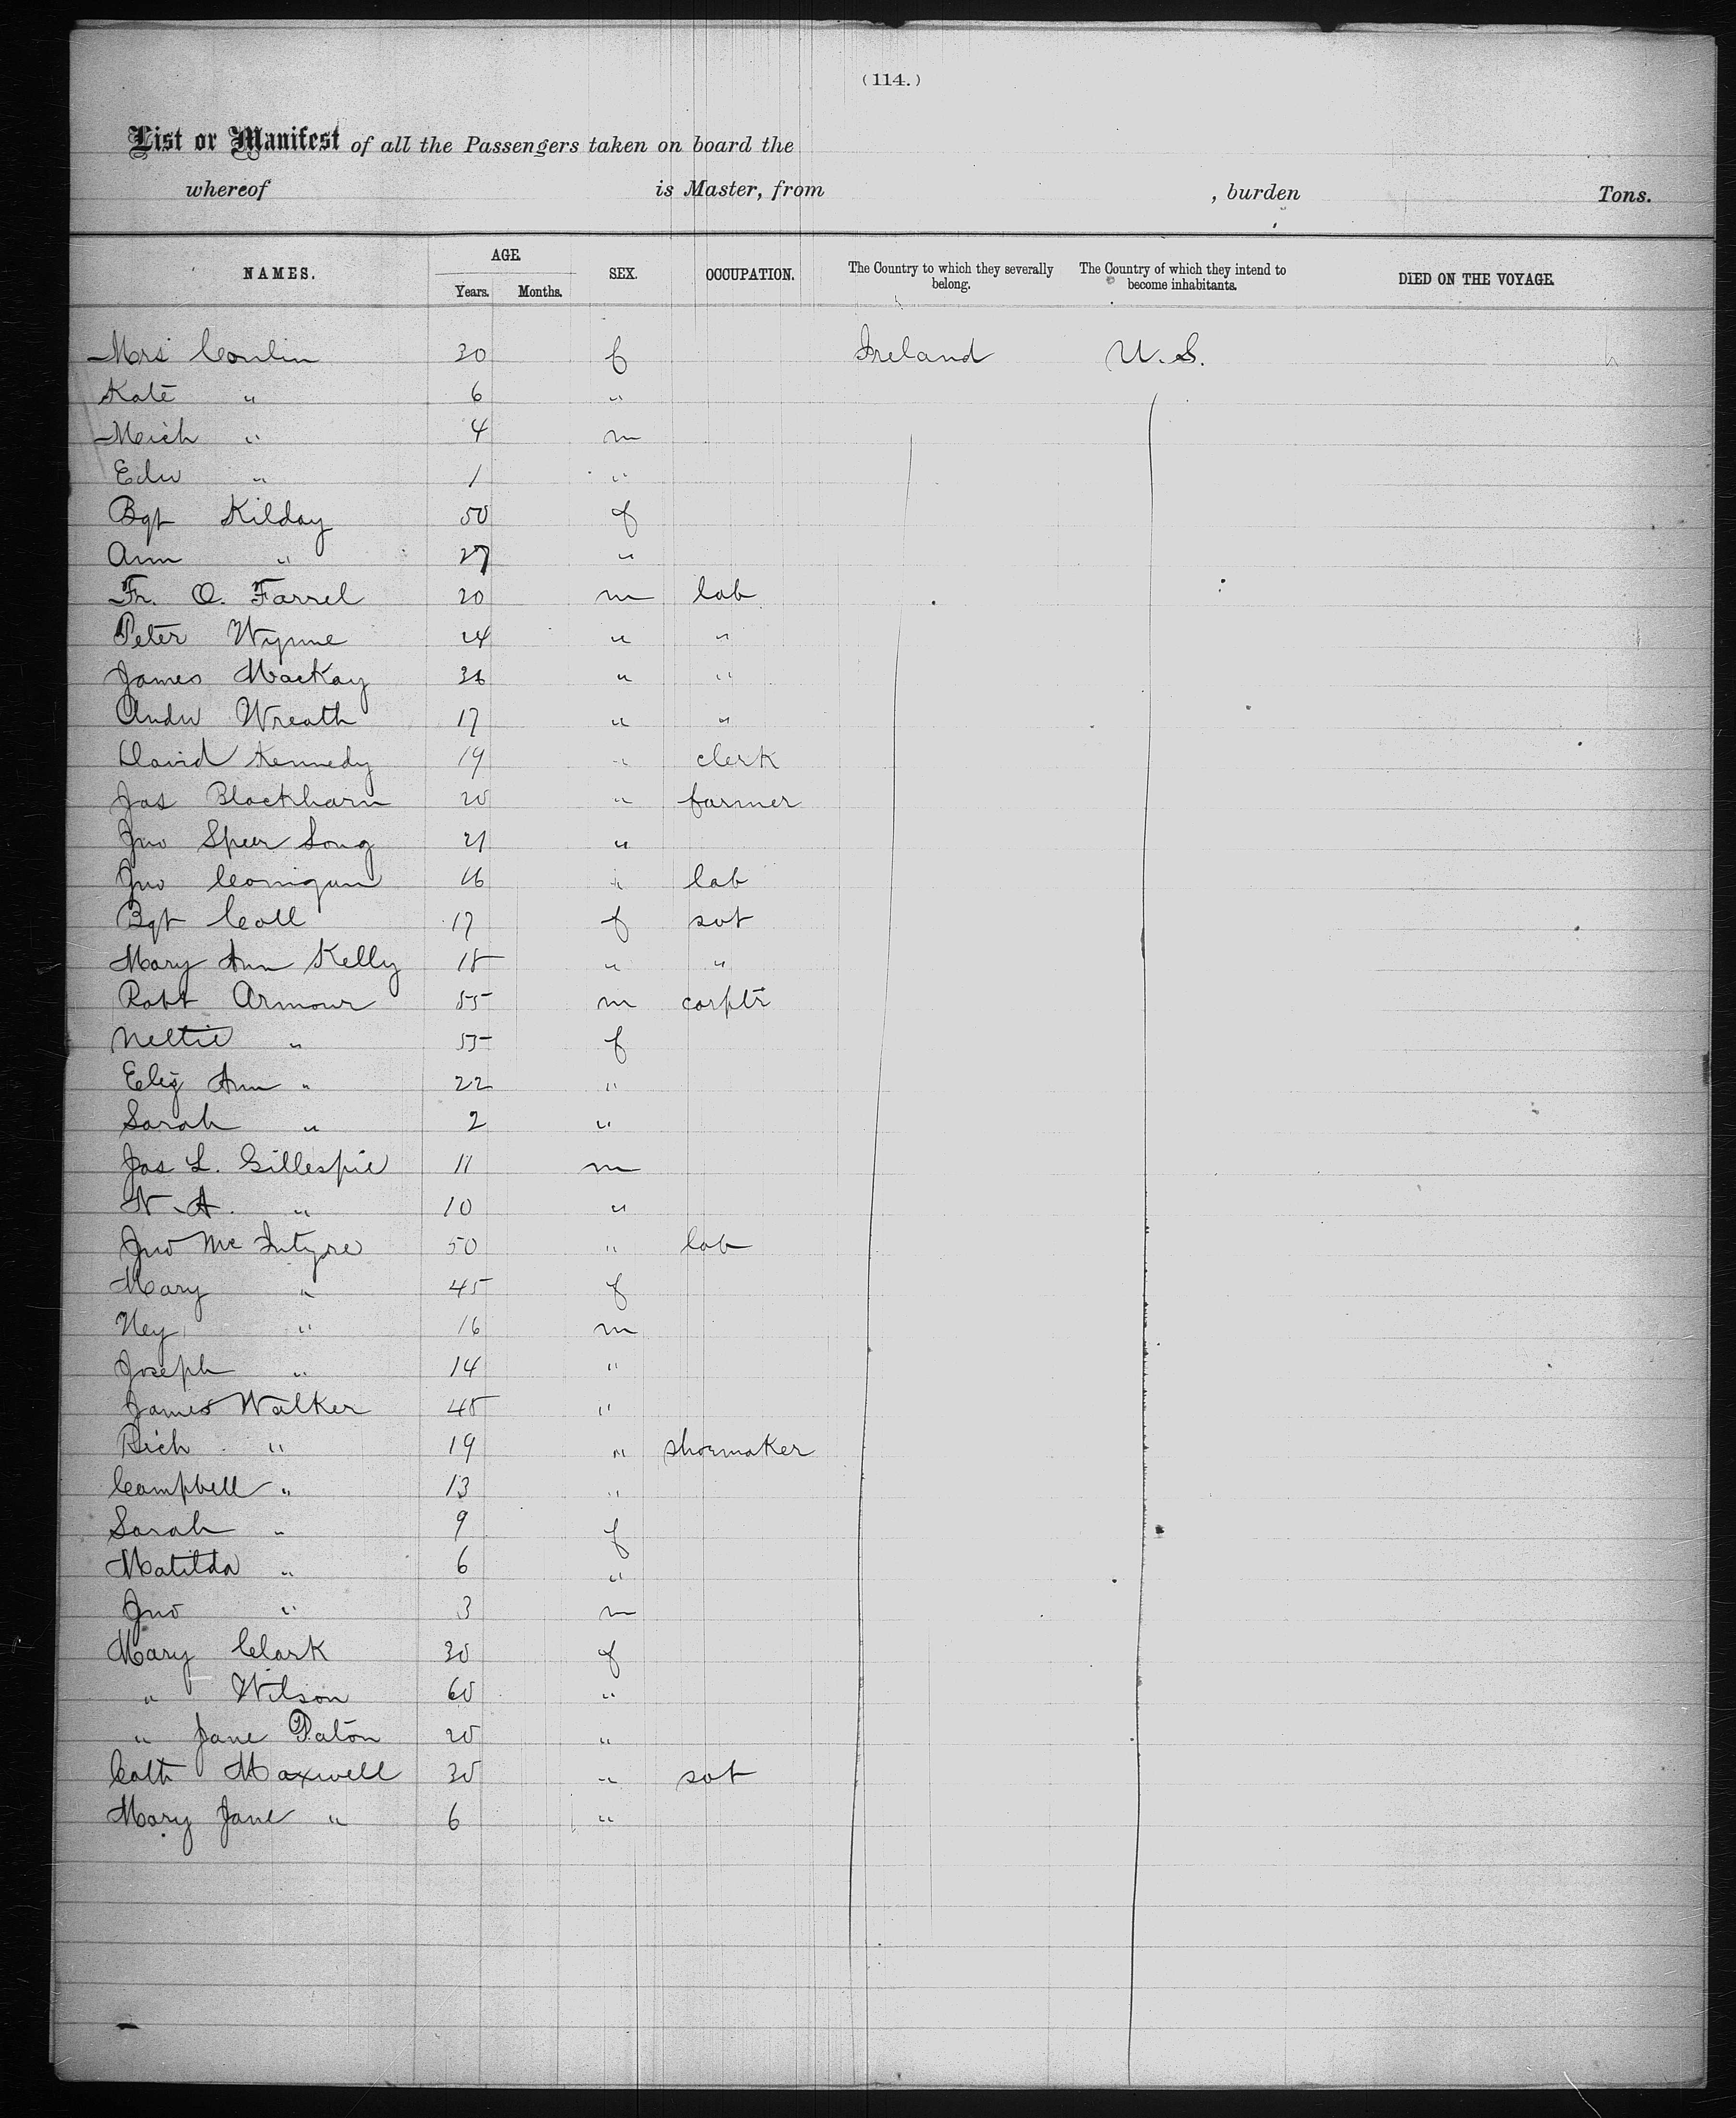 (114.)
List or Manifest of all the Passengers taken on board the
whereof is Master, from , burden Tons.
NAMES. AGE. SEX. OCCUPATION. The Country to which they severally belong. The Country of which they intend to become inhabitants. DIED ON THE VOYAGE.
Years. Months.
Mrs Conlin 30 f Ireland U.S.
Kate " 6 "
Mich " 4 m
Edw " 1 "
Bgt Kilday 50 f
Ann " 27 "
Fr. O. Farrel 20 m lab
Peter Wynne 24 " "
James Mackay " "
Andw Wreath 17 " "
David Kennedy 19 " clerk
Jas Blackharn 20 " farmer
Jno Speer Long 21 "
Jno Corrigan 16 " lab
Bgt Coll 17 f svt
Mary Ann Kelly 18 " "
Robt Armour 55 m carptr
Nettie " 55 f
Eliz Ann " 22 "
Sarah " 2 "
Jas L. Gillespie 11 m
" 10 "
Jno McIntyre 50 " lab
Mary " 45 f
Hey " 16 m
Joseph " 14 "
James Walker 45 "
Rich " 19 " shoemaker
Campbell " 13 "
Sarah " 9 f
Matilda " 6 "
Jno " 3 m
Mary Clark 30 f
" Wilson 60 "
" Jane Paton 20 "
Cath Maxwell 30 " svt
Mary Jane " 6 "